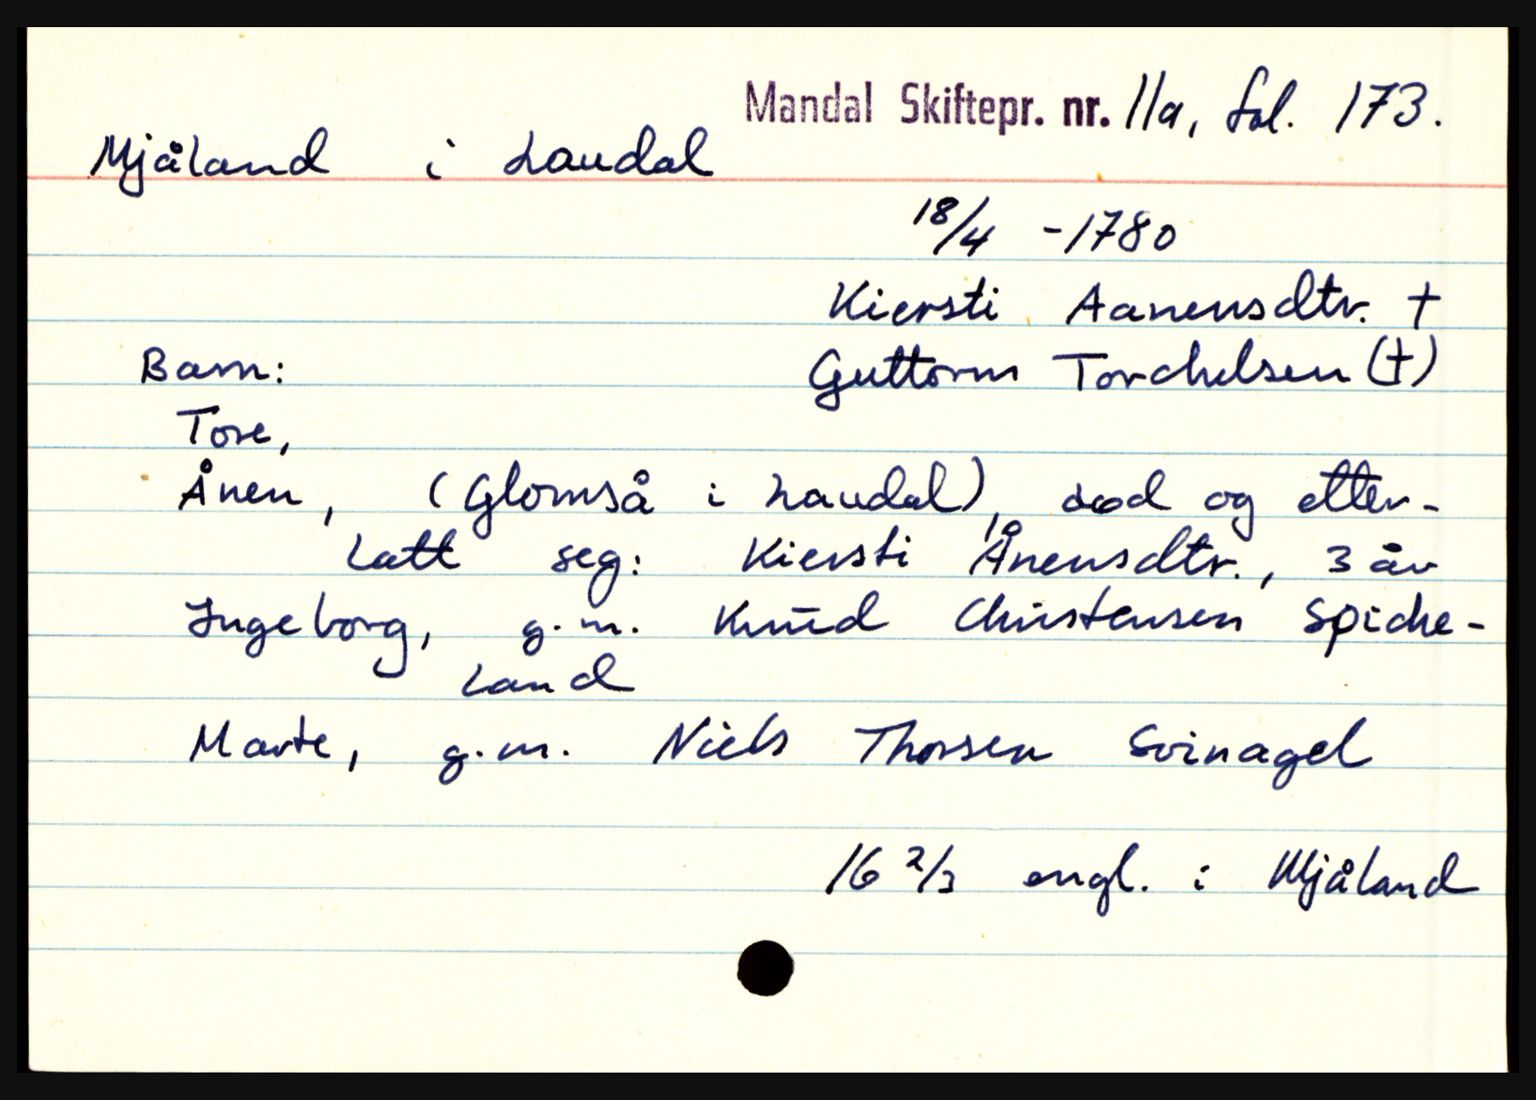 Mandal Skiftepr. nr. 11a, fol. 173.
Mjåland i Laudal
18/4 - 1780
Kiersti Aanensdtr. †
Barn: Guttorm Torchelsen (†)
Tore,
Ånen, (Glomså i Laudal), død og etter-
latt seg: Kiersti Ånensdtr., 3 år
Ingeborg, g.m. Knud Christensen Spiche-
land
Marte, g.m. Niels Thorsen Svinagel
16 2/3 engl. i Mjåland